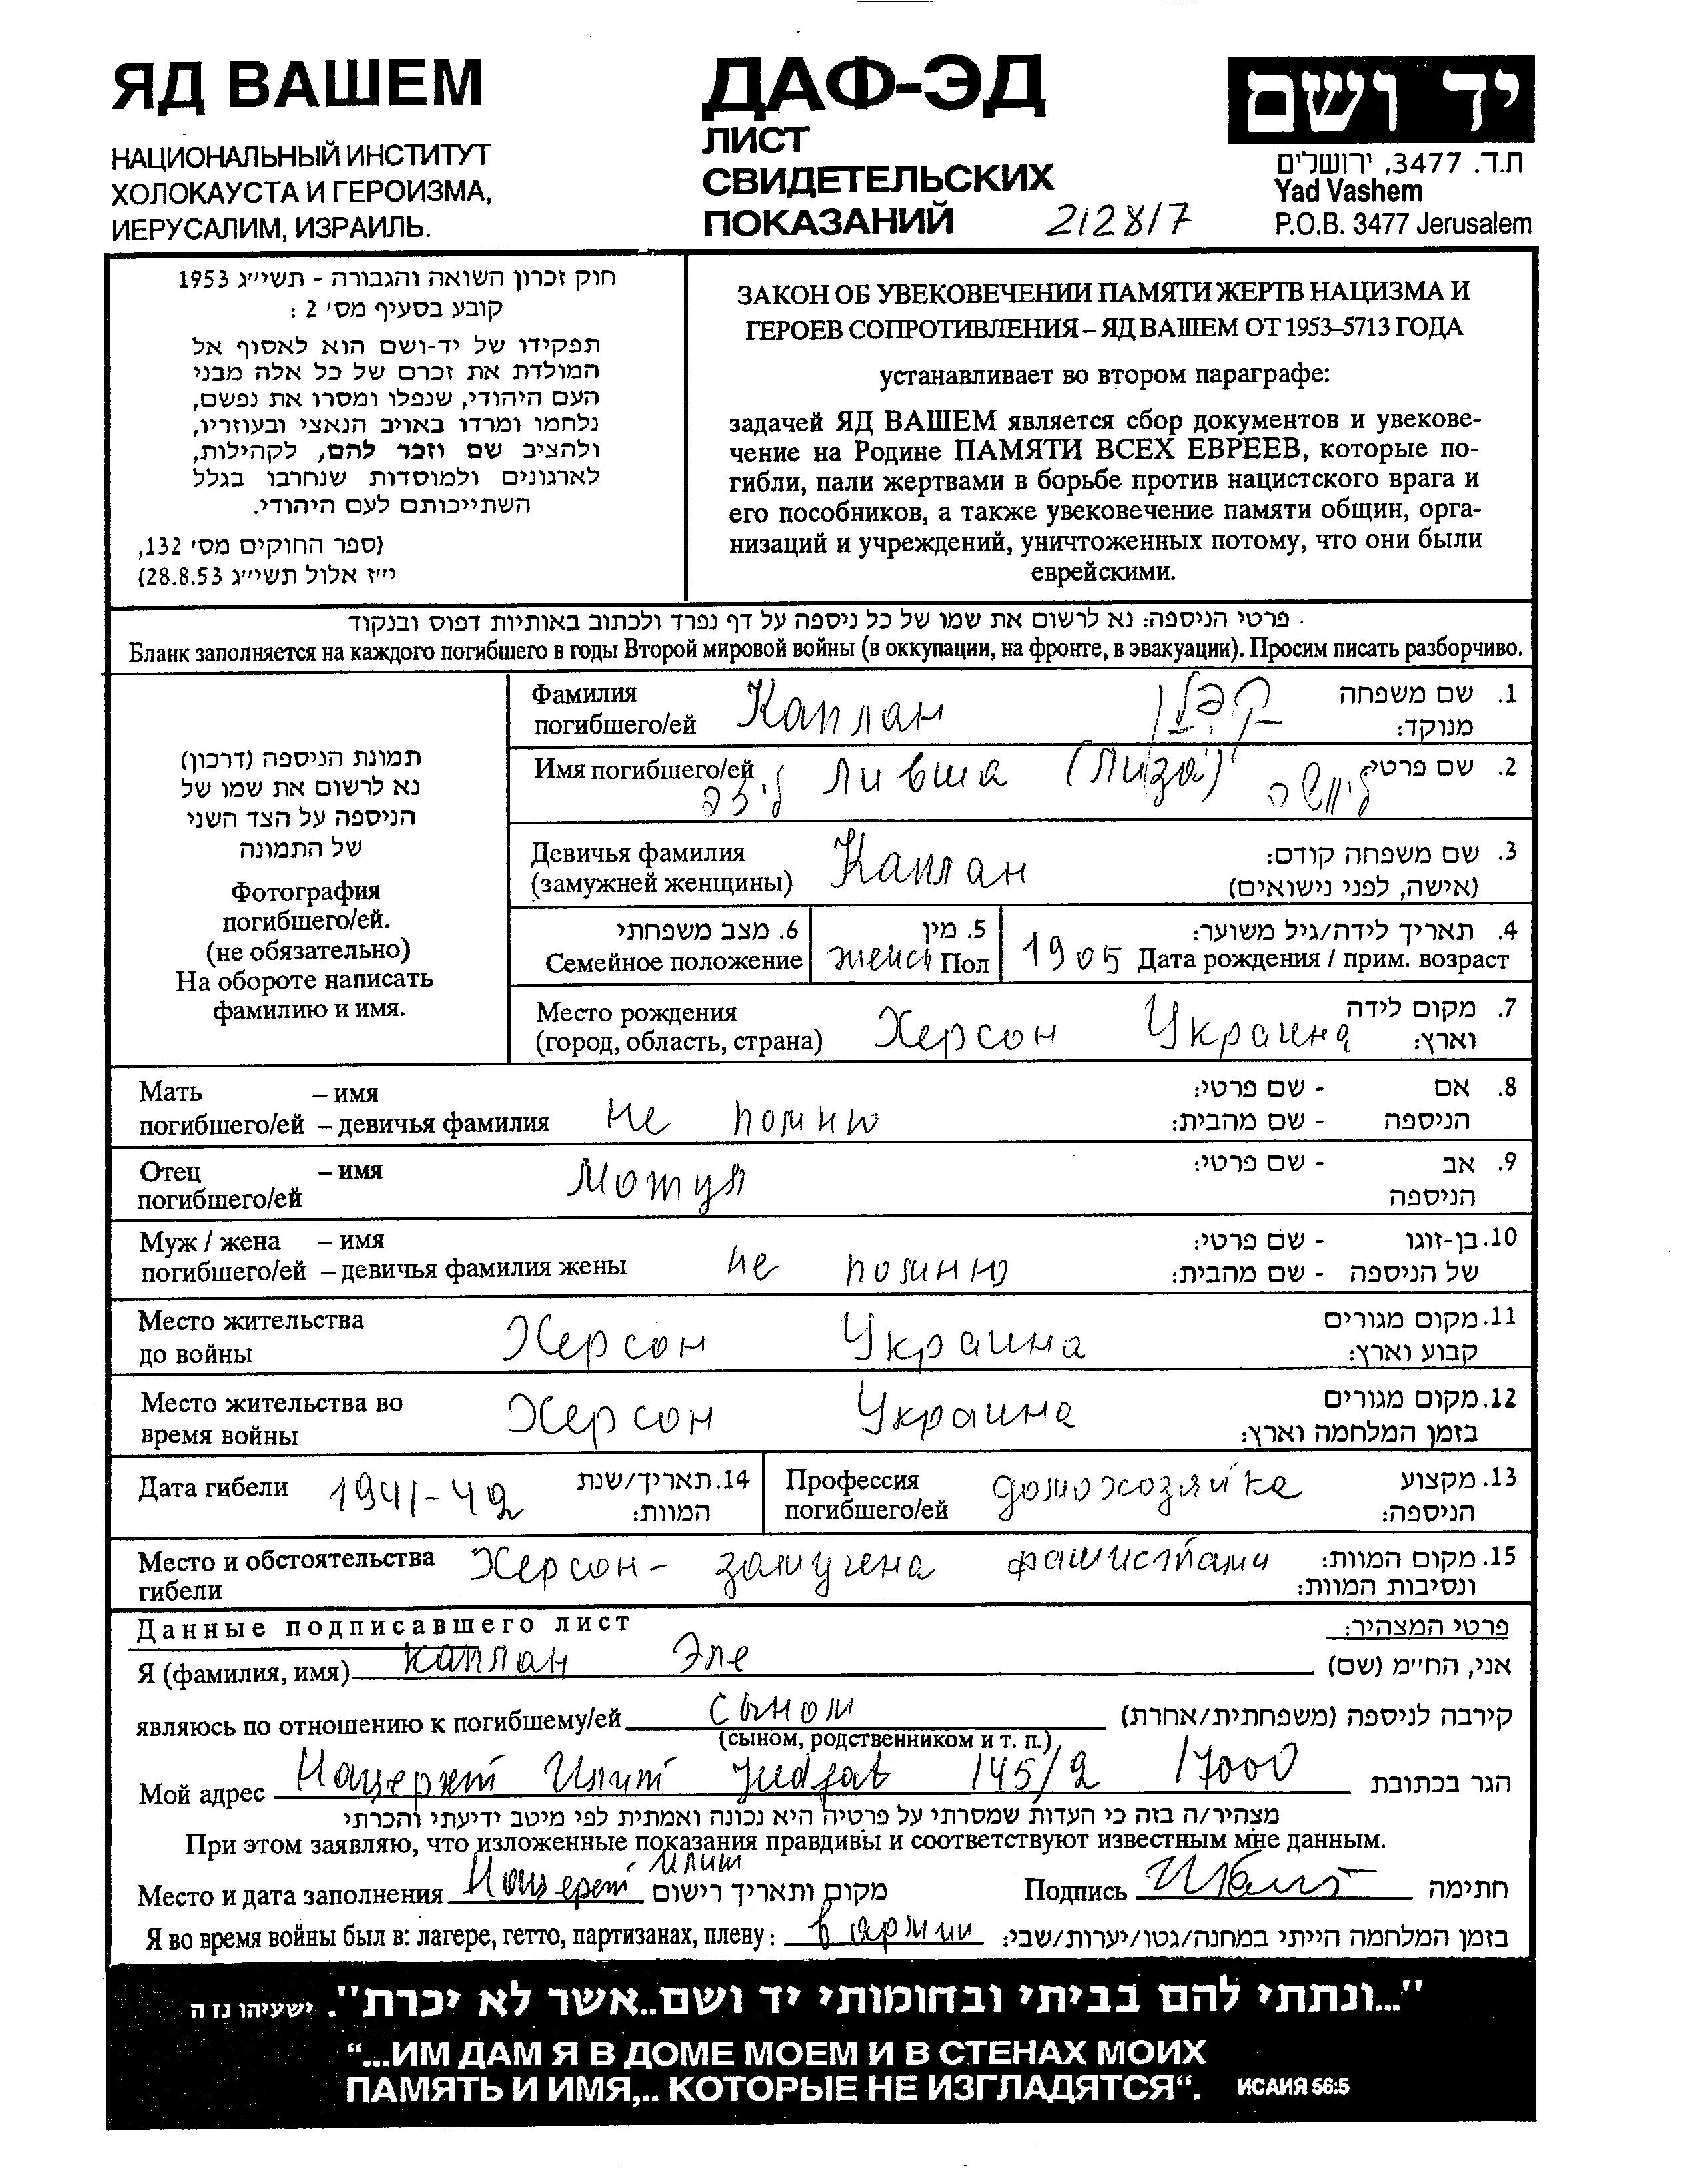 ЯД ВАШЕМ
НАЦИОНАЛЬНЫЙ ИНСТИТУТ
ХОЛОКАУСТА И ГЕРОИЗМА,
ИЕРУСАЛИМ, ИЗРАИЛЬ.
ДАФ-ЭД
ЛИСТ
СВИДЕТЕЛЬСКИХ
ПОКАЗАНИЙ 212817
יד ושם
ת.ד. 3477, ירושלים
Yad Vashem
P.O.B. 3477 Jerusalem
חוק זכרון השואה והגבורה - תשי״ג 1953
קובע בסעיף מס׳ 2 :
תפקידו של יד-ושם הוא לאסוף אל
המולדת את זכרם של כל אלה מבני
העם היהודי, שנפלו ומסרו את נפשם,
נלחמו ומרדו באויב הנאצי ובעוזריו,
ולהציב שם וזכר להם, לקהילות,
לארגונים ולמוסדות שנחרבו בגלל
השתייכותם לעם היהודי.
(ספר החוקים מס׳ 132,
י״ז אלול תשי״ג 28.8.53)
ЗАКОН ОБ УВЕКОВЕЧЕНИИ ПАМЯТИ ЖЕРТВ НАЦИЗМА И
ГЕРОЕВ СОПРОТИВЛЕНИЯ – ЯД ВАШЕМ ОТ 1953–5713 ГОДА
устанавливает во втором параграфе:
задачей ЯД ВАШЕМ является сбор документов и увекове-
чение на Родине ПАМЯТИ ВСЕХ ЕВРЕЕВ, которые по-
гибли, пали жертвами в борьбе против нацистского врага и
его пособников, а также увековечение памяти общин, орга-
низаций и учреждений, уничтоженных потому, что они были
еврейскими.
פרטי הניספה: נא לרשום את שמו של כל ניספה על דף נפרד ולכתוב באותיות דפוס ובנקוד
Бланк заполняется на каждого погибшего в годы Второй мировой войны (в оккупации, на фронте, в эвакуации). Просим писать разборчиво.
תמונת הניספה (דרכון)
נא לרשום את שמו של
הניספה על הצד השני
של התמונה
Фотография
погибшего/ей.
(не обязательно)
На обороте написать
фамилию и имя.
Фамилия
погибшего/ей Каплан קפלן
1. שם משפחה
מנוקד:
Имя погибшего/ей Ливша (Лиза) ליזה ליושה
2. שם פרטי
Девичья фамилия
(замужней женщины) Каплан
3. שם משפחה קודם:
(אישה, לפני נישואים)
6. מצב משפחתי
Семейное положение
5. מין
женск Пол
4. תאריך לידה/גיל משוער:
1905 Дата рождения / прим. возраст
Место рождения
(город, область, страна) Херсон Украина
7. מקום לידה
וארץ:
Мать – имя
погибшего/ей – девичья фамилия не помню
8. אם - שם פרטי:
הניספה - שם מהבית:
Отец – имя
погибшего/ей Мотул
9. אב - שם פרטי:
הניספה
Муж / жена – имя
погибшего/ей – девичья фамилия жены не помню
10. בן-זוגו - שם פרטי:
של הניספה - שם מהבית:
Место жительства
до войны Херсон Украина
11. מקום מגורים
קבוע וארץ:
Место жительства во
время войны Херсон Украина
12. מקום מגורים
בזמן המלחמה וארץ:
Дата гибели 1941-42
14. תאריך/שנת
המוות:
Профессия
погибшего/ей домохозяйка
13. מקצוע
הניספה:
Место и обстоятельства
гибели Херсон - замучена фашистами
15. מקום המוות:
ונסיבות המוות:
Данные подписавшего лист
פרטי המצהיר:
Я (фамилия, имя) Каплан Эле אני, החי״מ (שם)
являюсь по отношению к погибшему/ей сыном קירבה לניספה (משפחתית/אחרת)
(сыном, родственником и т. п.)
Мой адрес Нацерет Илит 145/2 17000 הגר בכתובת
מצהיר/ה בזה כי העדות שמסרתי על פרטיה היא נכונה ואמתית לפי מיטב ידיעתי והכרתי
При этом заявляю, что изложенные показания правдивы и соответствуют известным мне данным.
Место и дата заполнения Нацерет Илит מקום ותאריך רישום Подпись חתימה
Я во время войны был в: лагере, гетто, партизанах, плену: в армии בזמן המלחמה הייתי במחנה/גטו/יערות/שבי:
"...ונתתי להם בביתי ובחומותי יד ושם..אשר לא יכרת". ישעיהו נז ה
“...ИМ ДАМ Я В ДОМЕ МОЕМ И В СТЕНАХ МОИХ
ПАМЯТЬ И ИМЯ,.. КОТОРЫЕ НЕ ИЗГЛАДЯТСЯ“. ИСАИЯ 56:5